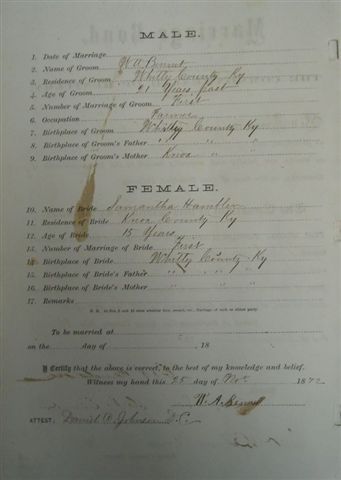 MALE.
1. Date of Marriage
2. Name of Groom W. A. Bennet
3. Residence of Groom Whitly County Ky
4. Age of Groom 21 Years past
5. Number of Marriage of Groom First
6. Occupation Farmer
7. Birthplace of Groom Whitly County Ky
8. Birthplace of Groom's Father " " "
9. Birthplace of Groom's Mother Knox "
FEMALE.
10. Name of Bride Samantha Hamblin
11. Residence of Bride Knox County Ky
12. Age of Bride 15 Years
13. Number of Marriage of Bride First
14. Birthplace of Bride Whitly County Ky
15. Birthplace of Bride's Father " " "
16. Birthplace of Bride's Mother " " "
17. Remarks
To be married at
on the day of 18
I Certify that the above is correct, to the best of my knowledge and belief.
Witness my hand this 25 day of Nov 1872
W. A. Bennet
ATTEST: Daniel D. Johnson D.C.